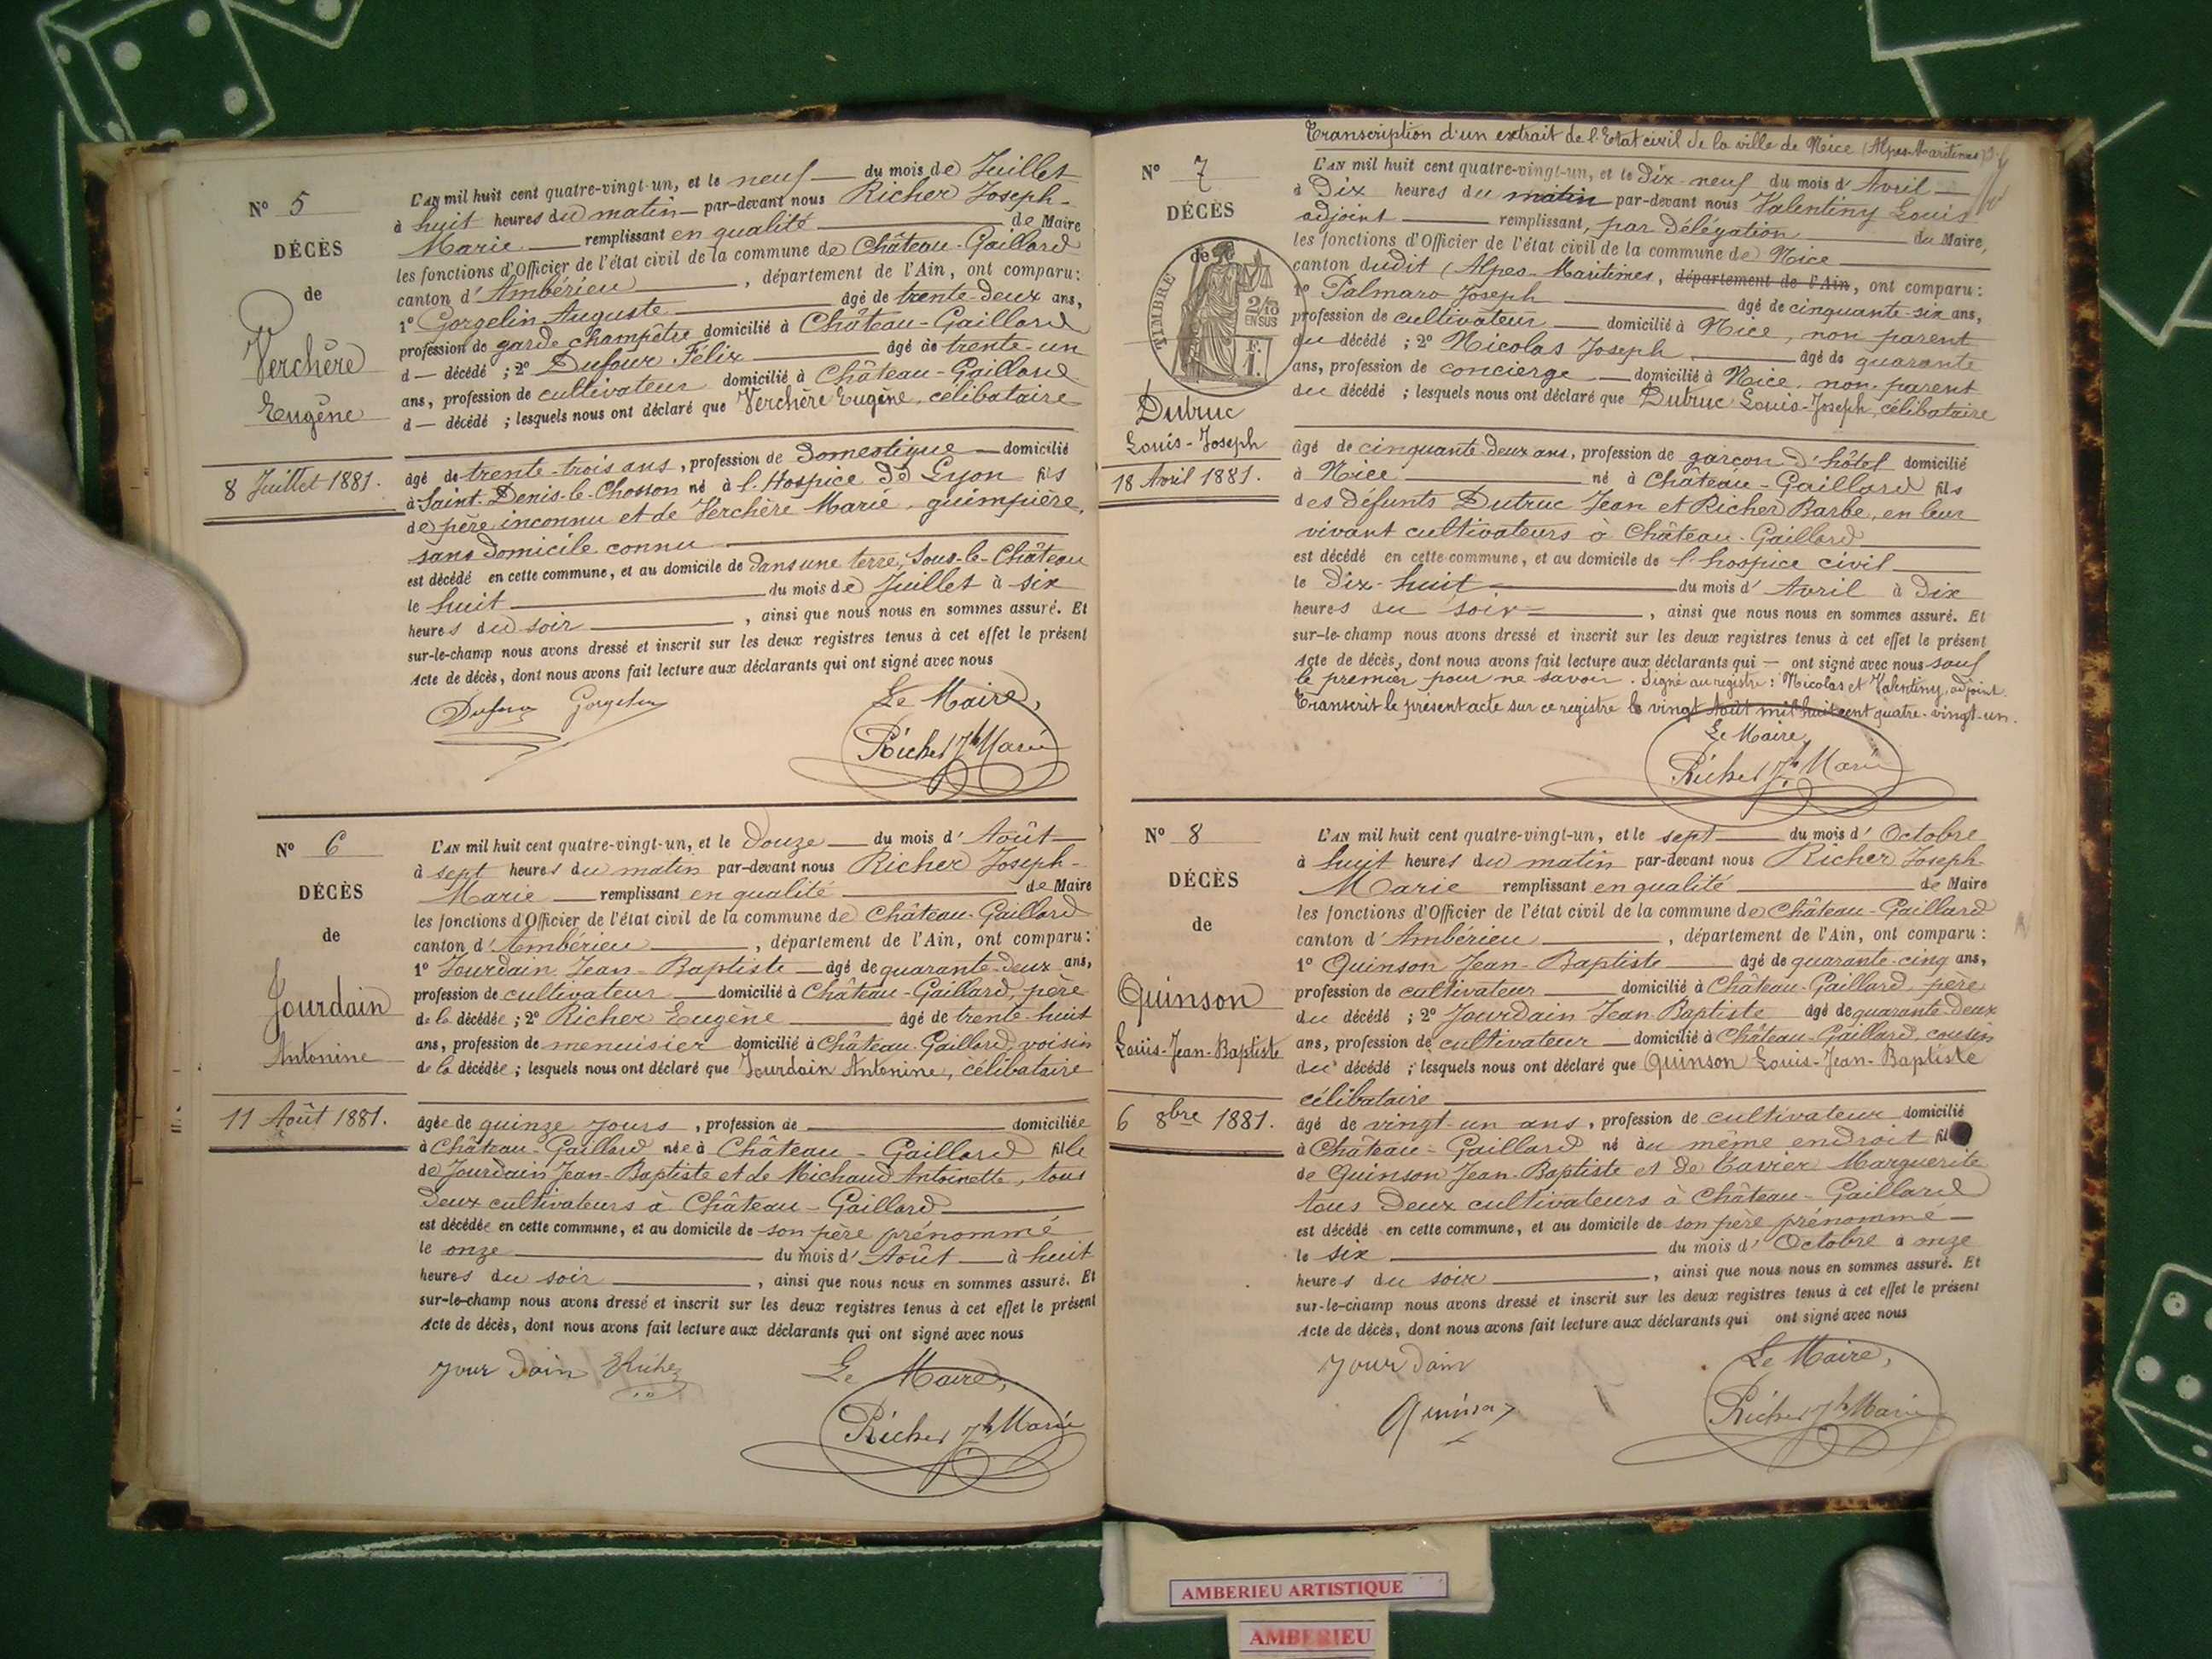 N° 5
DÉCÈS
de
Verchère
Eugène
8 Juillet 1881.
L'AN mil huit cent quatre-vingt-un, et le neuf — du mois de Juillet
à huit heures du matin — par-devant nous Richer Joseph-
Marie — remplissant en qualité — de Maire
les fonctions d'Officier de l'état civil de la commune de Château-Gaillard
canton d'Ambérieu —, département de l'Ain, ont comparu:
1° Gorgelin Auguste — âgé de trente-deux ans,
profession de garde champêtre domicilié à Château-Gaillard
d — décédé ; 2° Dufour Félix — âgé de trente-un
ans, profession de cultivateur domicilié à Château-Gaillard
d — décédé ; lesquels nous ont déclaré que Verchère Eugène, célibataire
âgé de trente-trois ans, profession de Domestique — domicilié
à Saint-Denis-le-Chosson né à l'Hospice de Lyon fils
de père inconnu et de Verchère Marie, guimpière,
sans domicile connu —
est décédé en cette commune, et au domicile de dans une terre, Sous-le-Château
le huit — du mois de Juillet à six
heures du soir —, ainsi que nous nous en sommes assuré. Et
sur-le-champ nous avons dressé et inscrit sur les deux registres tenus à cet effet le présent
Acte de décès, dont nous avons fait lecture aux déclarants qui ont signé avec nous
Dufour Gorgelin Le Maire,
Richer Jh Marie
N° 6
DÉCÈS
de
Jourdain
Antonine
11 Août 1881.
L'AN mil huit cent quatre-vingt-un, et le Douze — du mois d'Août —
à sept heures du matin par-devant nous Richer Joseph-
Marie — remplissant en qualité — de Maire
les fonctions d'Officier de l'état civil de la commune de Château-Gaillard
canton d'Ambérieu —, département de l'Ain, ont comparu:
1° Jourdain Jean-Baptiste — âgé de quarante-deux ans,
profession de cultivateur — domicilié à Château-Gaillard, père
de la décédée ; 2° Richer Eugène — âgé de trente-huit
ans, profession de menuisier domicilié à Château-Gaillard, voisin
de la décédée ; lesquels nous ont déclaré que Jourdain Antonine, célibataire
âgée de quinze jours, profession de — domiciliée
à Château-Gaillard née à Château-Gaillard fille
de Jourdain Jean-Baptiste et de Michaud Antoinette, tous
deux cultivateurs à Château-Gaillard —
est décédée en cette commune, et au domicile de son père prénommé
le onze — du mois d'Août — à huit
heures du soir —, ainsi que nous nous en sommes assuré. Et
sur-le-champ nous avons dressé et inscrit sur les deux registres tenus à cet effet le présent
Acte de décès, dont nous avons fait lecture aux déclarants qui ont signé avec nous
Jourdain ERicher Le Maire,
Richer Jh Marie
Transcription d'un extrait de l'Etat civil de la ville de Nice (Alpes-Maritimes)
N° 7
DÉCÈS
de
TIMBRE
2/10
EN SUS
F.
1.
Dutruc
Louis-Joseph
18 Avril 1881.
L'AN mil huit cent quatre-vingt-un, et le Dix-neuf du mois d'Avril —
à Dix heures du matin par-devant nous Valentiny Louis
adjoint — remplissant, par délégation — du Maire,
les fonctions d'Officier de l'état civil de la commune de Nice —
canton dudit (Alpes-Maritimes, département de l'Ain, ont comparu:
1° Palmaro Joseph — âgé de cinquante-six ans,
profession de cultivateur — domicilié à Nice, non parent
du décédé ; 2° Nicolas Joseph — âgé de quarante
ans, profession de concierge — domicilié à Nice, non parent
du décédé ; lesquels nous ont déclaré que Dutruc Louis-Joseph, célibataire
âgé de cinquante-deux ans, profession de garçon d'hôtel domicilié
à Nice — né à Château-Gaillard fils
des défunts Dutruc Jean et Richer Barbe, en leur
vivant cultivateurs à Château-Gaillard —
est décédé en cette commune, et au domicile de l'hospice civil —
le Dix-huit — du mois d'Avril à Dix
heures du soir —, ainsi que nous nous en sommes assuré. Et
sur-le-champ nous avons dressé et inscrit sur les deux registres tenus à cet effet le présent
Acte de décès, dont nous avons fait lecture aux déclarants qui — ont signé avec nous sauf
le premier pour ne savoir. Signé au registre : Nicolas et Valentiny, adjoint.
Transcrit le présent acte sur ce registre le vingt Août mil huit cent quatre-vingt-un.
Le Maire,
Richer Jh Marie
N° 8
DÉCÈS
de
Quinson
Louis-Jean-Baptiste
6 8bre 1881.
L'AN mil huit cent quatre-vingt-un, et le sept — du mois d'Octobre
à huit heures du matin par-devant nous Richer Joseph-
Marie remplissant en qualité — de Maire
les fonctions d'Officier de l'état civil de la commune de Château-Gaillard
canton d'Ambérieu —, département de l'Ain, ont comparu :
1° Quinson Jean-Baptiste — âgé de quarante-cinq ans,
profession de cultivateur — domicilié à Château-Gaillard, père
du décédé ; 2° Jourdain Jean-Baptiste âgé de quarante-deux
ans, profession de cultivateur — domicilié à Château-Gaillard, cousin
du décédé ; lesquels nous ont déclaré que Quinson Louis-Jean-Baptiste
célibataire —
âgé de vingt-un ans, profession de cultivateur domicilié
à Château-Gaillard né au même endroit fil
de Quinson Jean-Baptiste et de Tavier Marguerite
tous deux cultivateurs à Château-Gaillard
est décédé en cette commune, et au domicile de son père prénommé —
le six — du mois d'Octobre à onze
heures du soir —, ainsi que nous nous en sommes assuré. Et
sur-le-champ nous avons dressé et inscrit sur les deux registres tenus à cet effet le présent
Acte de décès, dont nous avons fait lecture aux déclarants qui ont signé avec nous
Jourdain Le Maire,
Quinson Richer Jh Marie
AMBERIEU ARTISTIQUE
AMBERIEU